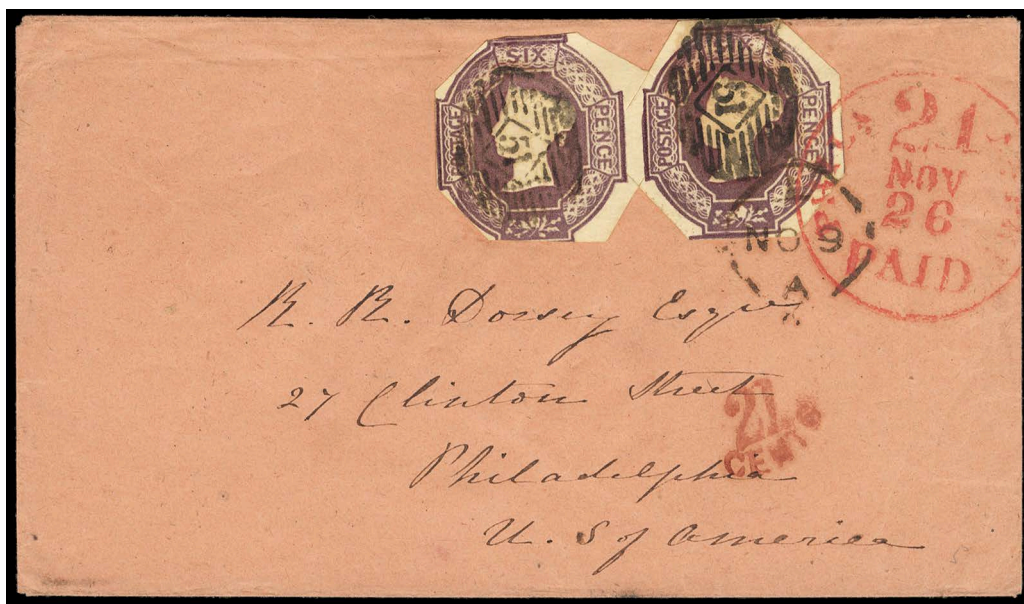 SIX
POSTAGE
PENCE
51
POSTAGE
PENCE
51
21
NOV
26
PAID
NO 9
A
R. R. Dorsey Esqre
27 Clinton Street
21
CENTS
Philadelphia
U. S of America